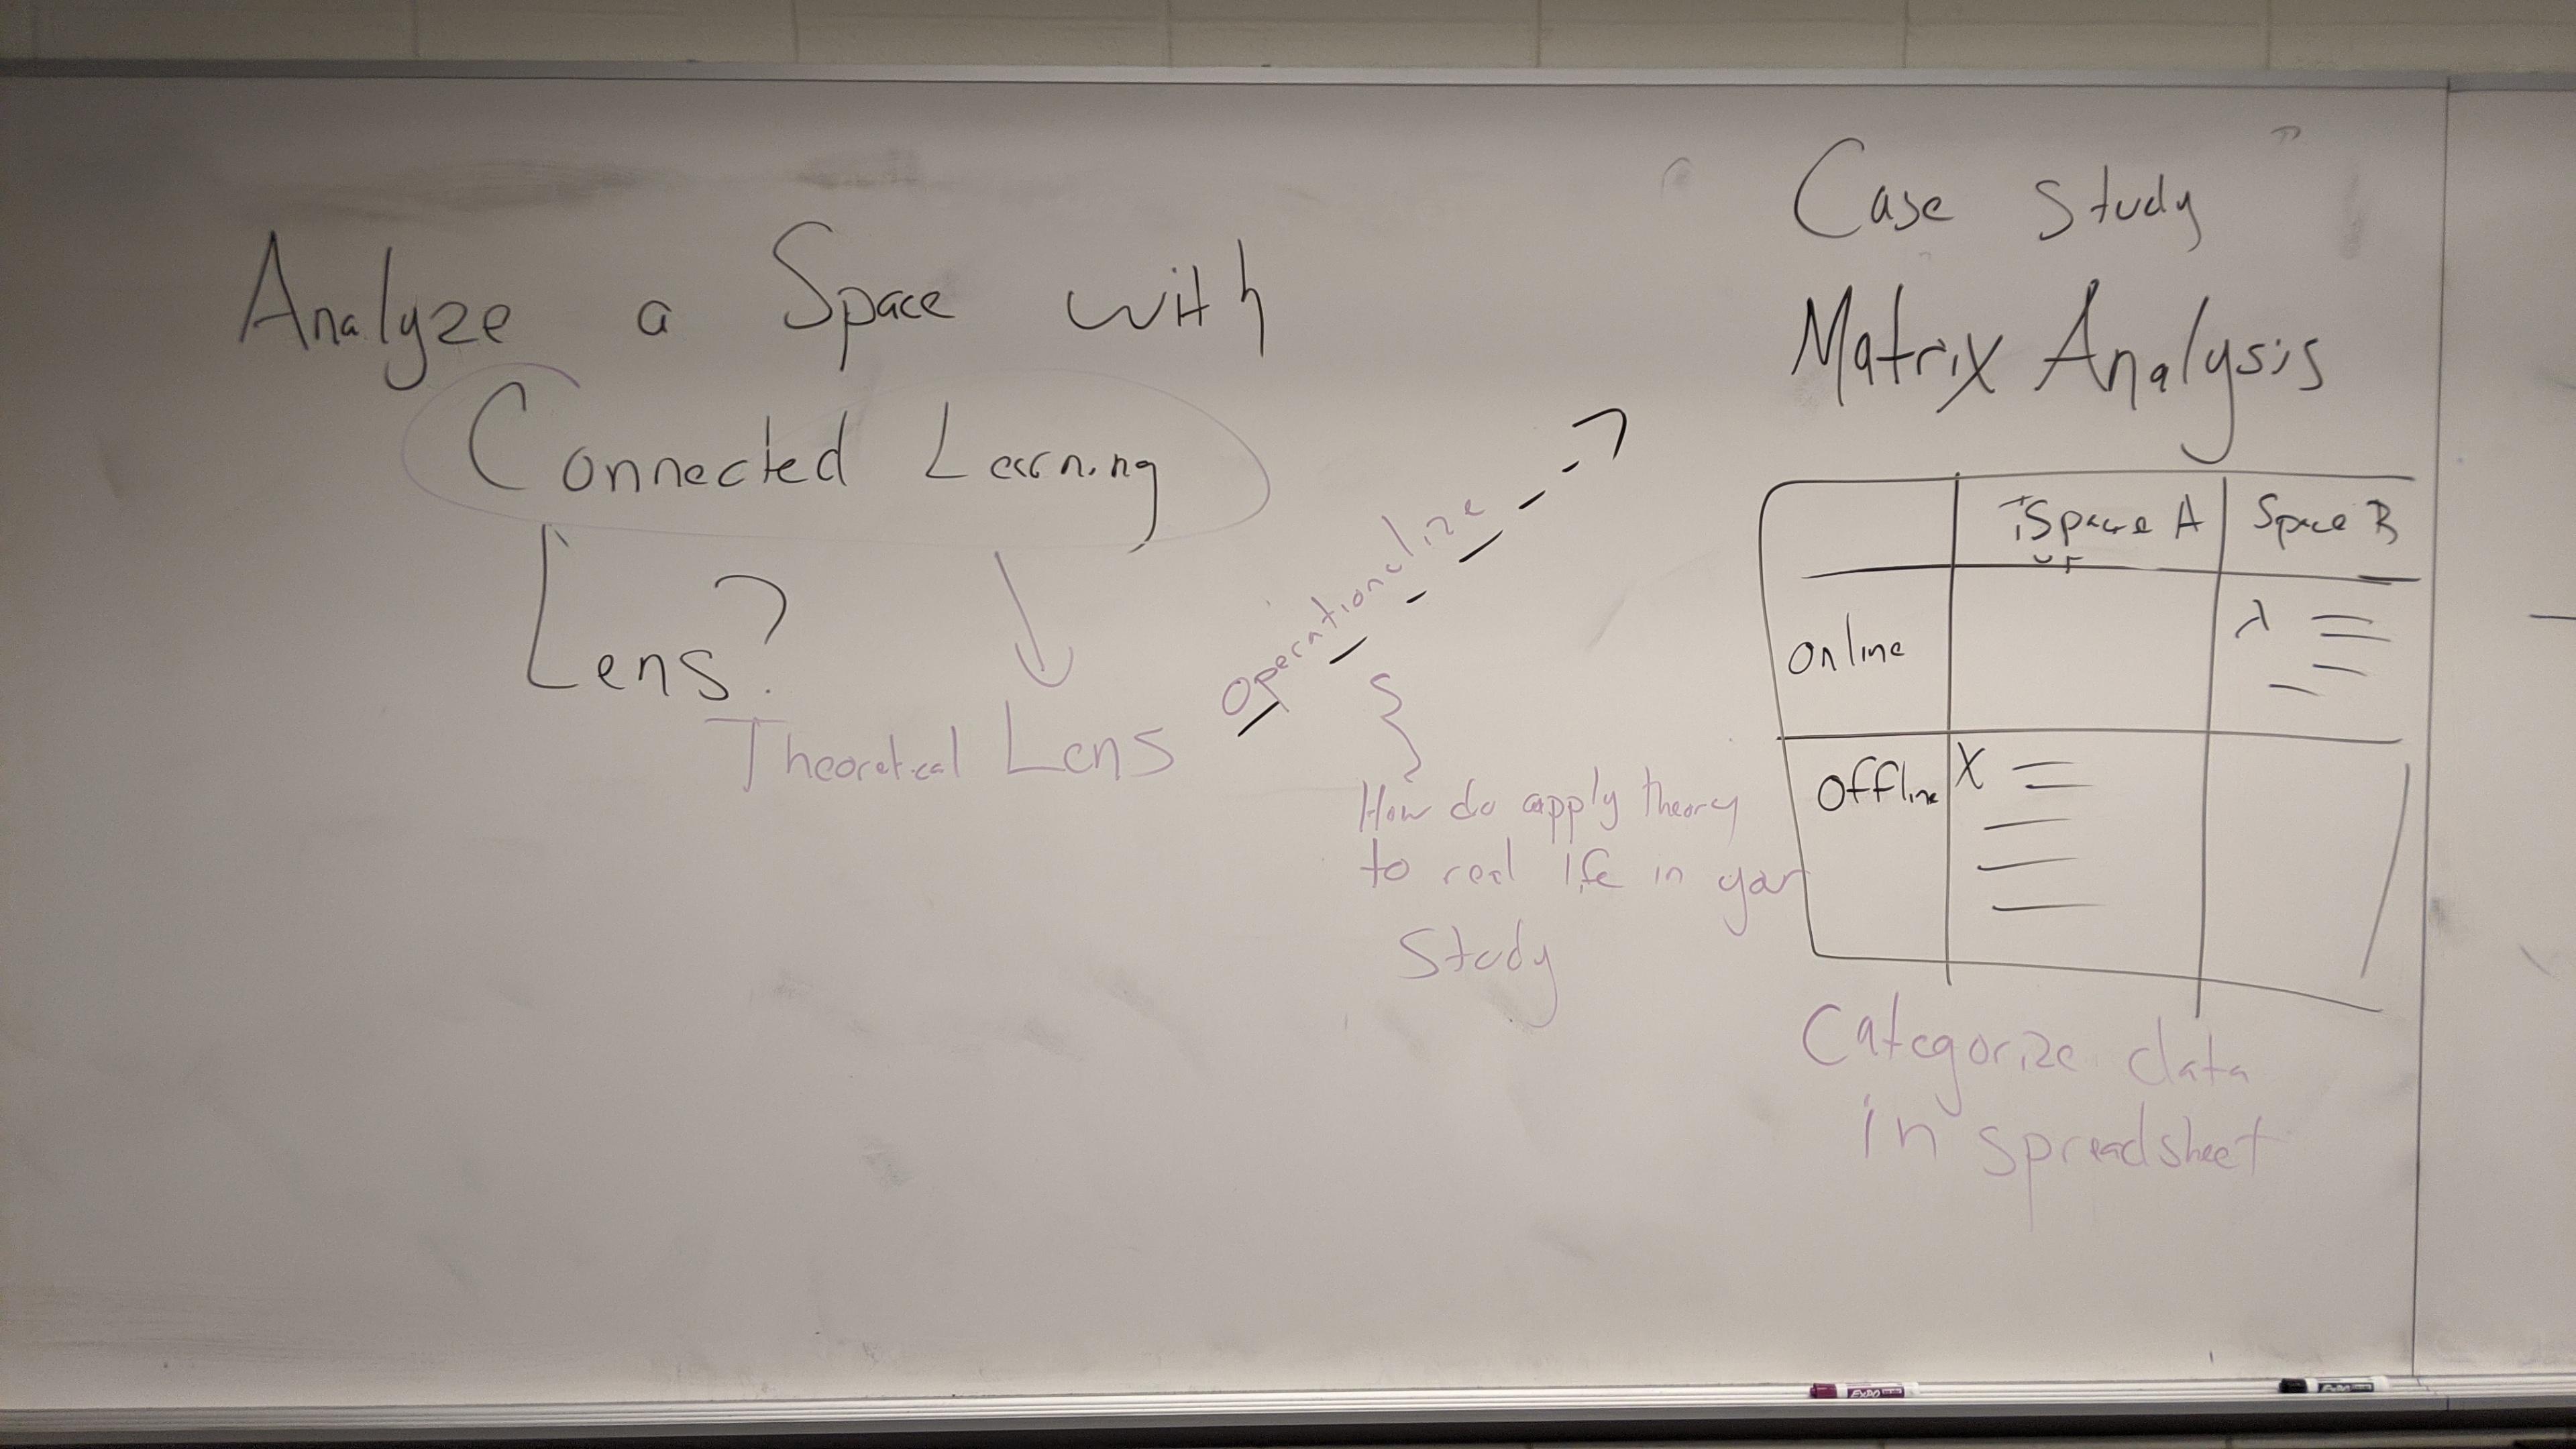 Analyze a Space with
Connected Learning
Lens?
Theoretical Lens
Operationalize
How do apply theory
to real life in your
Study
Case Study
Matrix Analysis
Space A
Space B
Online
Offline
X
Categorize data
in spreadsheet
EXPO
EXPO